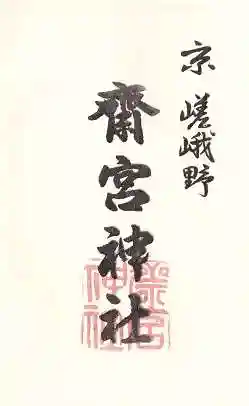 京 嵯峨野
齋宮神社
齋宮
神社